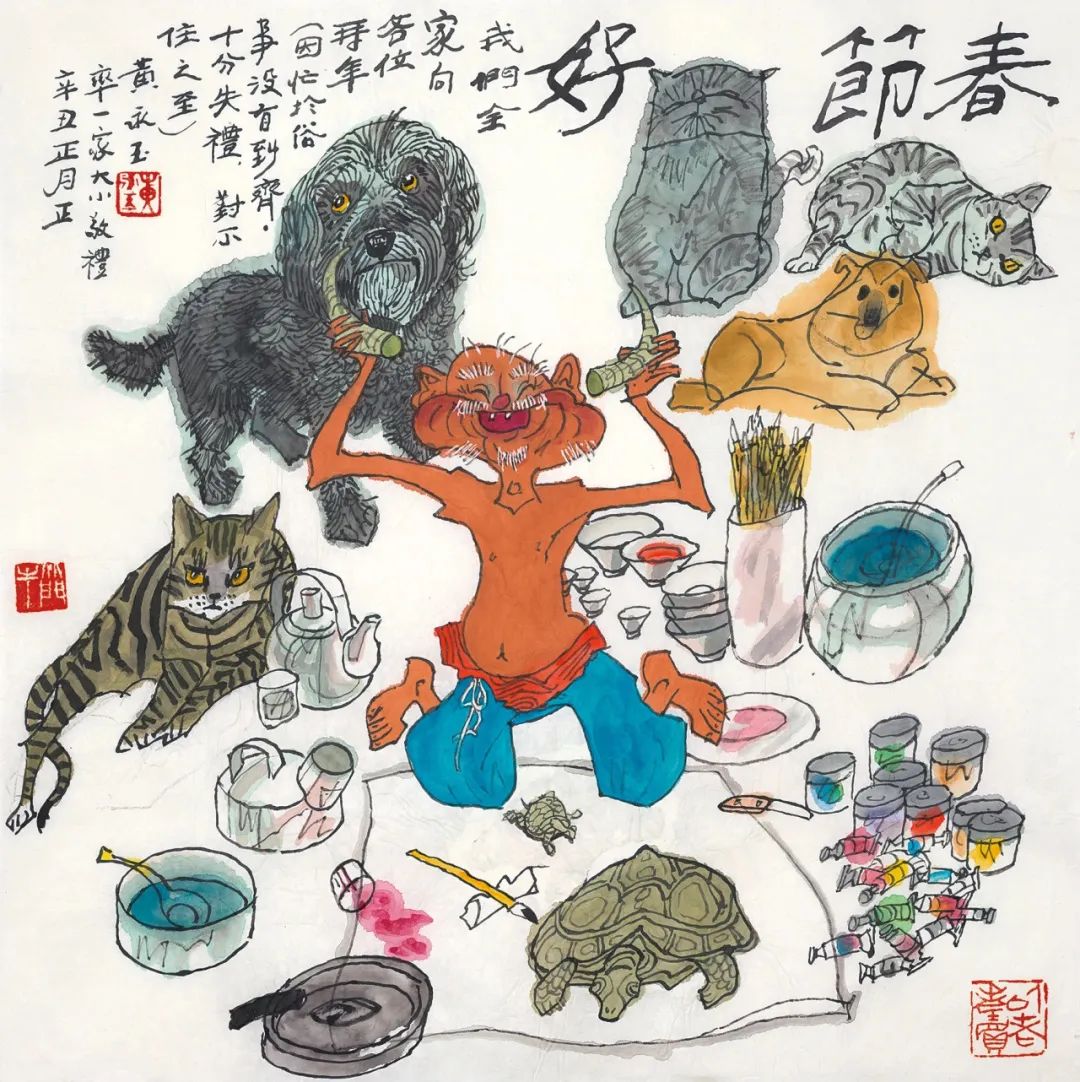 春節好
我們全
家向
各位
拜年
（因忙於俗
事没有到齊．
十分失禮 對不
住之至）
黃永玉
率一家大小敬禮
辛丑正月正